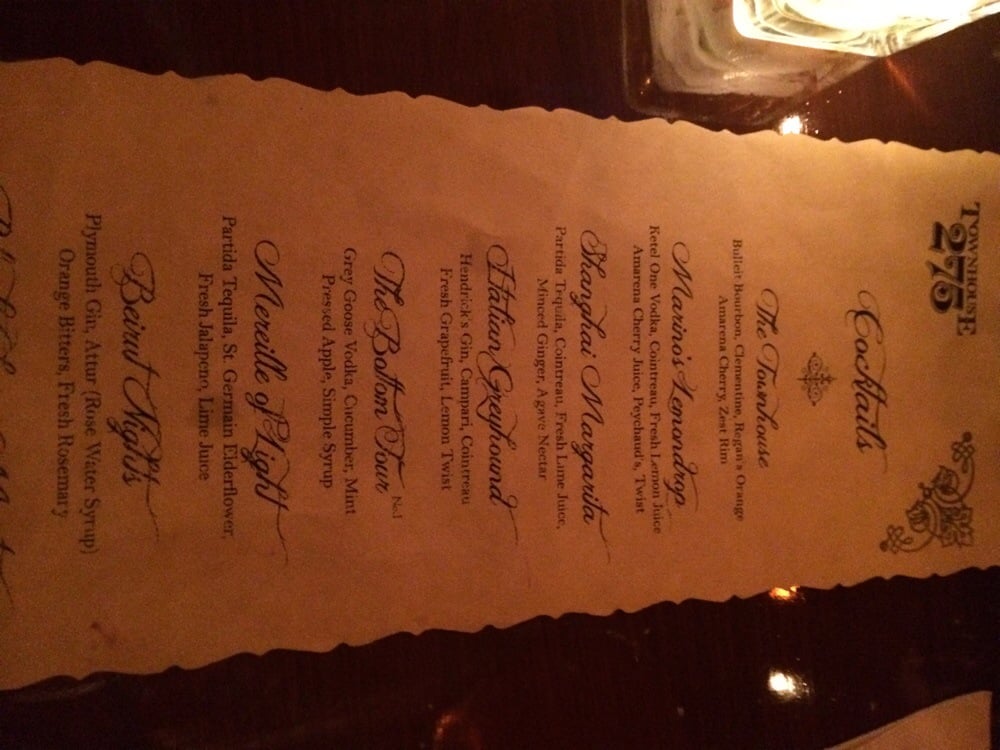 TOWNHOUSE
275
Cocktails
The Townhouse
Bulleit Bourbon, Clementine, Regan's Orange
Amarena Cherry, Zest Rim
Marino's Lemondrop
Ketel One Vodka, Cointreau, Fresh Lemon Juice
Amarena Cherry Juice, Peychaud's, Twist
Shanghai Margarita
Partida Tequila, Cointreau, Fresh Lime Juice,
Minced Ginger, Agave Nectar
Italian Greyhound
Hendrick's Gin, Campari, Cointreau
Fresh Grapefruit, Lemon Twist
The Bottom Four No.1
Grey Goose Vodka, Cucumber, Mint
Pressed Apple, Simple Syrup
Mereille of Light
Partida Tequila, St. Germain Elderflower,
Fresh Jalapeno, Lime Juice
Beirut Nights
Plymouth Gin, Attur (Rose Water Syrup)
Orange Bitters, Fresh Rosemary